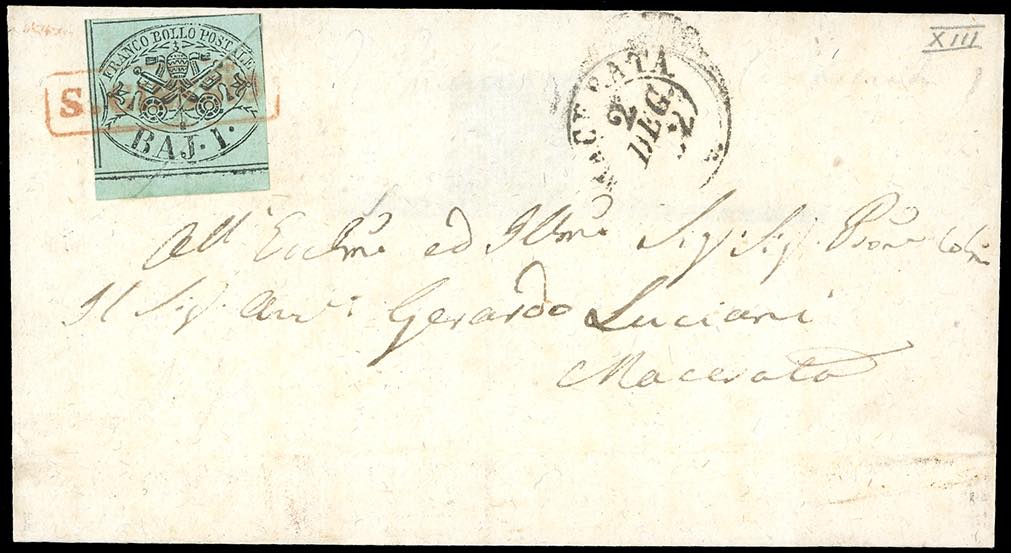 XIII
FRANCO BOLLO POSTALE
BAJ. 1.
S.
MACERATA
2
DEC.
All' Ecclmo ed Illmo Sig. Sig. Pron
Il Sig. Avv. Gerardo Luciani
Macerata